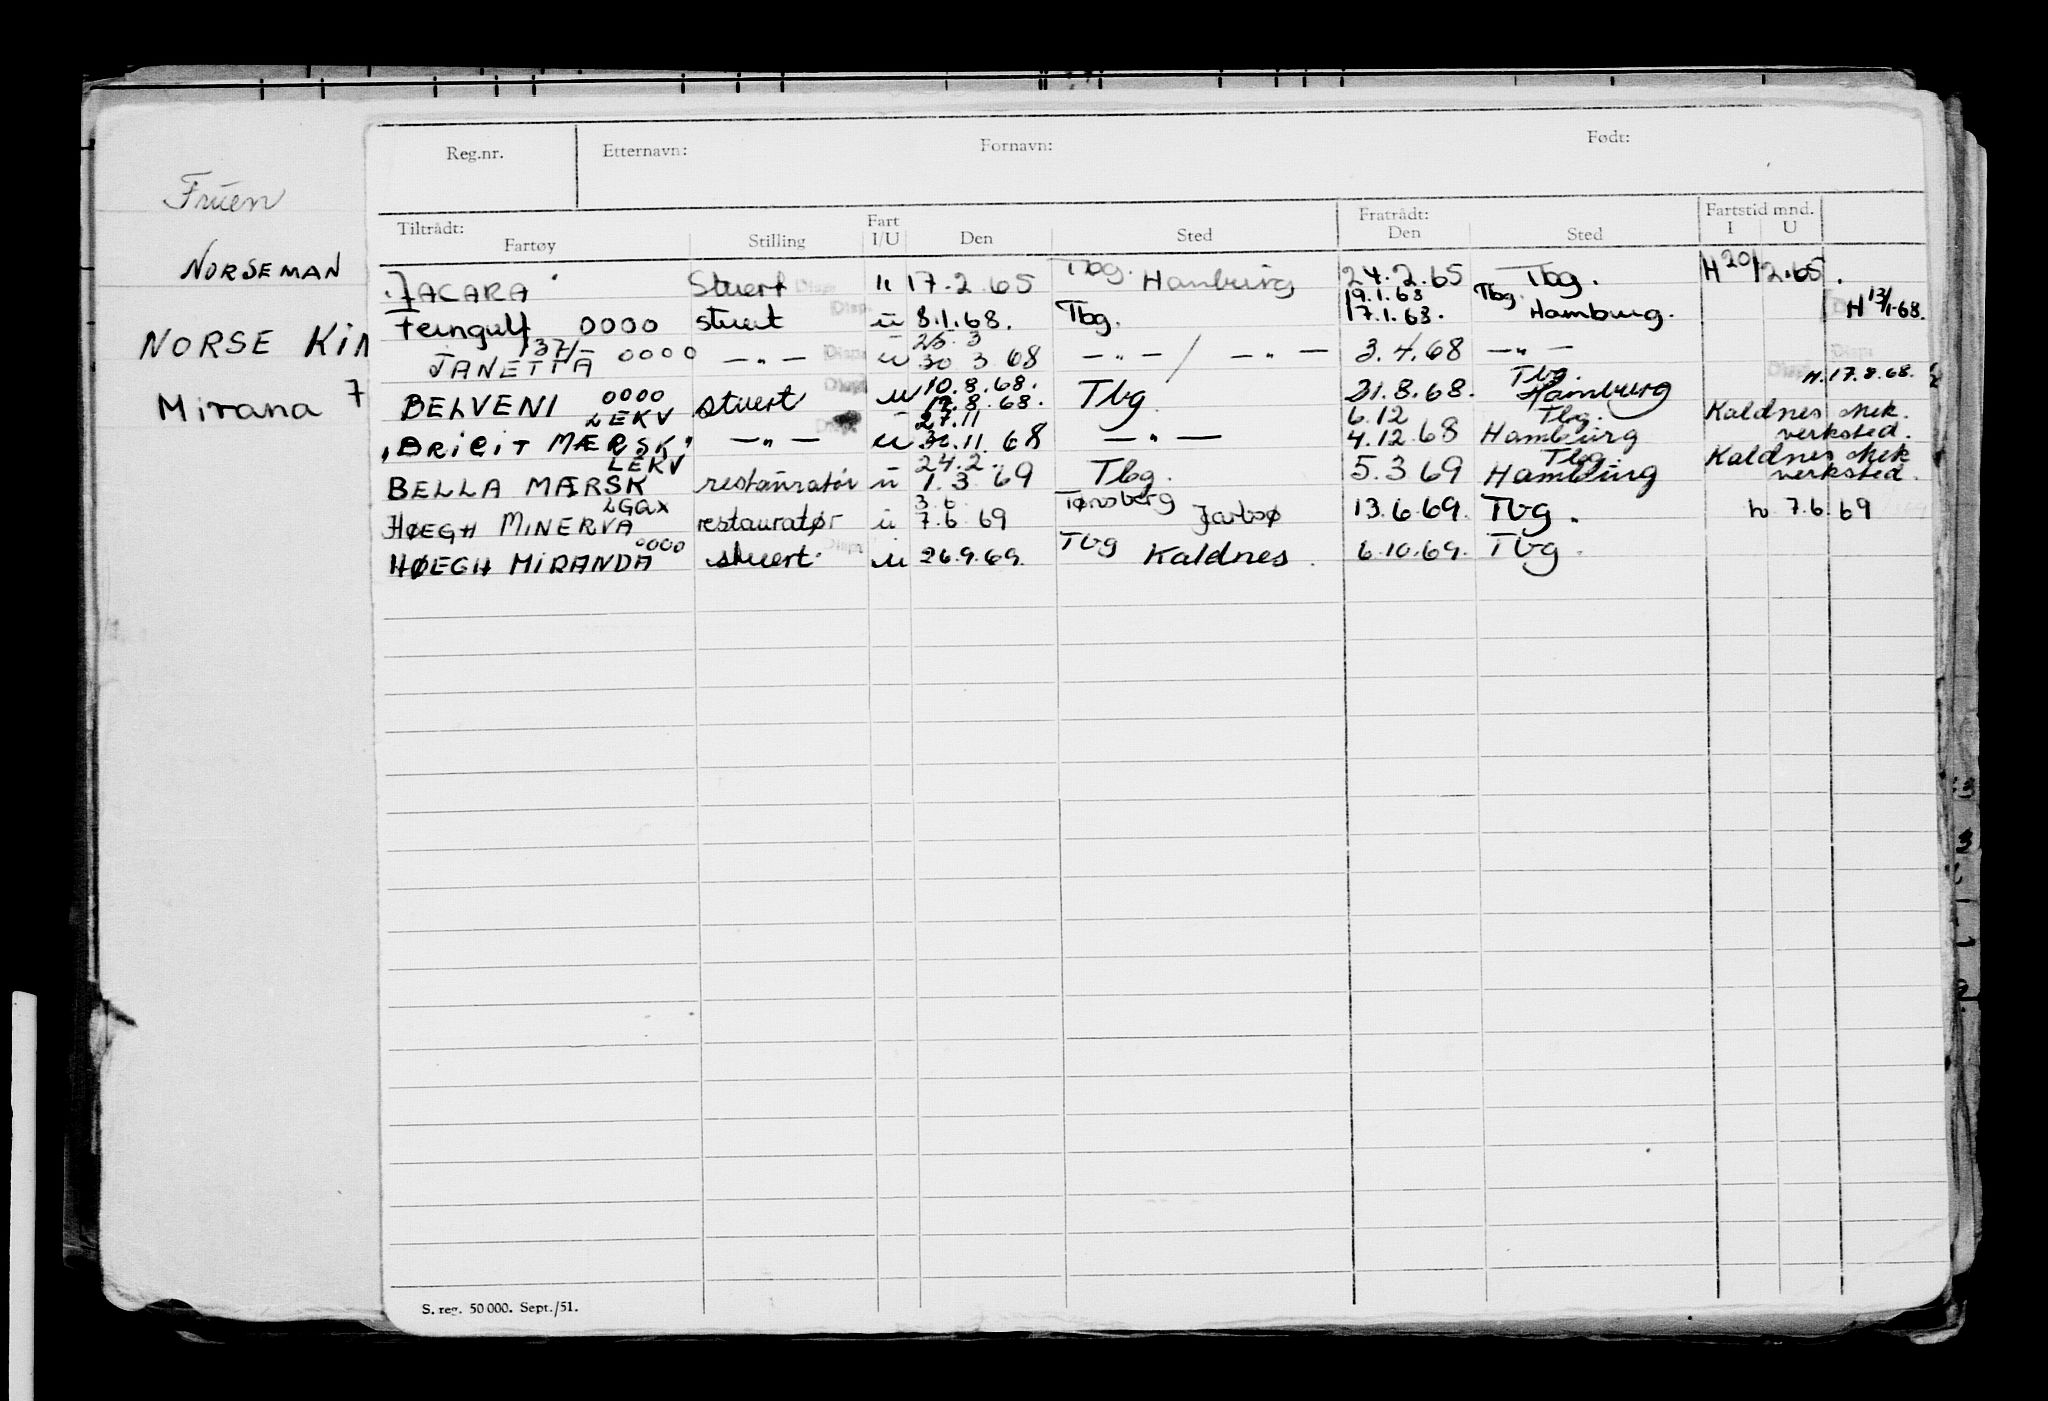 Fruen
NORSEMAN
NORSE KIN
Mirana 7
Reg.nr. Etternavn: Fornavn: Født:
Tiltrådt: Fartøy Stilling Fart I/U Den Sted Fratrådt: Den Sted Fartstid mnd. I U
JACARA Stuert u 17.2.65 Tbg. Hamburg 24.2.65 Tbg. H 20/2.65.
19.1.68 Tbg.
Ferngulf 0000 stuert u 8.1.68. Tbg. 17.1.68. Hamburg. H 13/1-68.
137/- 25.3
JANETTA 0000 —"— u 30 3 68 —"— / —"— 3.4.68 —"—
10.8.68. Tbg H. 17.8.68.
BELVENI 0000 stuert u 17.8.68. Tbg. 31.8.68. Hamburg
LEKV 27.11 6.12 Tbg. Kaldnes Mek.
"BRIGIT MÆRSK" —"— u 30.11.68 —"— 4.12.68 Hamburg verksted.
LEKV 24.2. Tbg. Kaldnes Mek
BELLA MÆRSK restauratør u 1.3.69 Tbg. 5.3 69 Hamburg verksted.
LGGX 3.6. Tønsberg
HØEGH MINERVA restauratør u 7.6 69 Jarlsø 13.6.69. Tbg. h 7.6.69
0000
HØEGH MIRANDA stuert. u 26.9.69. Tbg Kaldnes. 6.10.69. Tbg.
S. reg. 50 000. Sept./51.